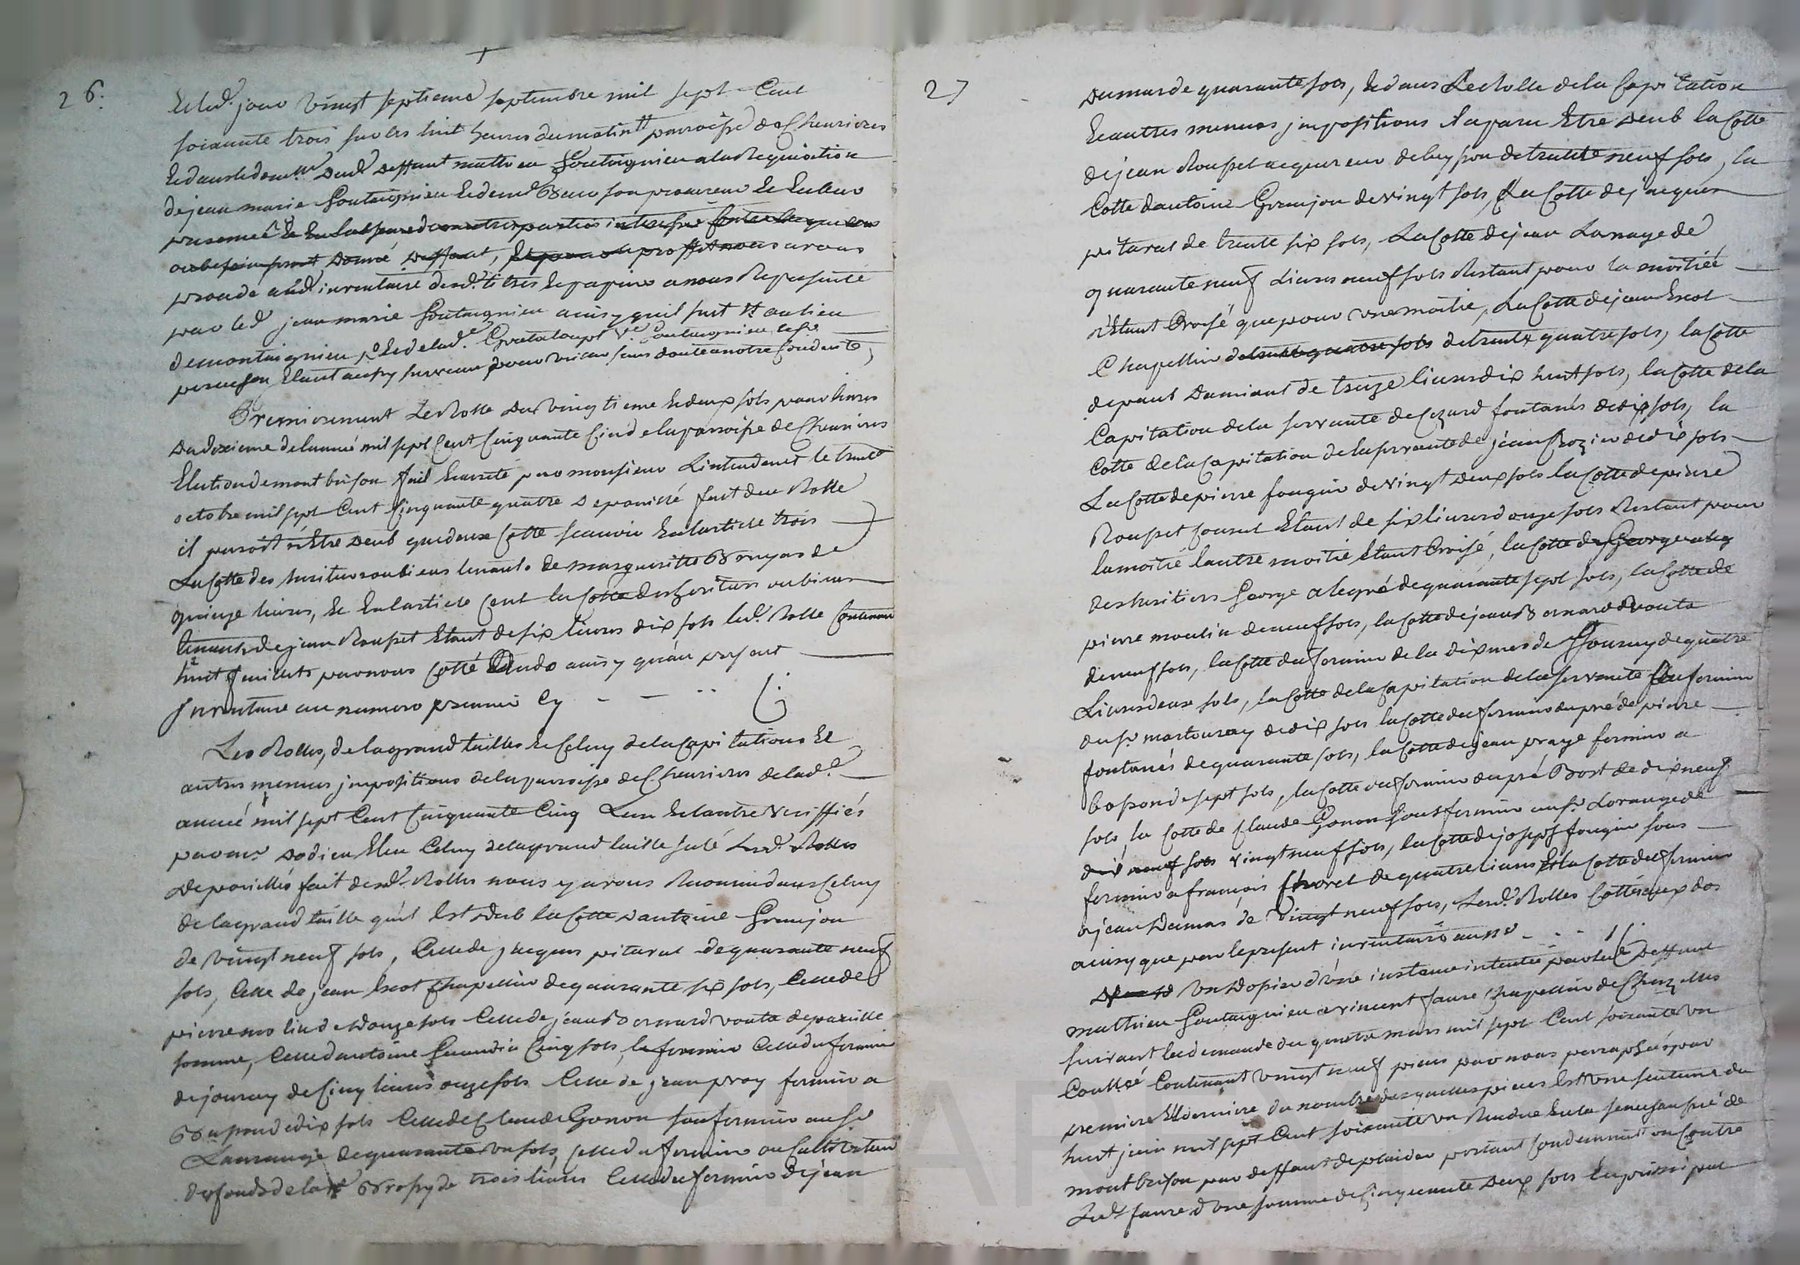 26.
Et led. jour vingt septieme septembre mil sept Cent
soixante trois sur les huit heures du matin parroisse de Chevrieres
Et dans le dom.lle dud. deffunt mathieu Goutaignieu a la Requisition
de jean marie Goutaignieu Et de me son procureur Et En leur
presence
au besoin avons donné deffaut, Et pour le proffit nous avons
procedé aud. inventaire desd. titres Et papiers a nous Representé
par led. jean marie Goutaignieu ainsy quil suit
Premierement Le Rolle du Vingtieme Et deux sols pour livres
du dixieme de lannée mil sept Cent Cinquante Cinq de la parroisse de Chevrieres
Election de montbrison fait Et arreté par monsieur Lintendant le trente
octobre mil sept Cent Cinquante quatre depouillé fait du Rolle
il paroit n'Etre deub que deux Cotte scavoir En larticle trois
La Cotte des heritiers ou biens tenants de margueritte
quinze livres, Et En larticle Cent la Cotte des heritiers ou biens
tenants de jean Rouset Etant de six livres dix sols led. Rolle Contenant
huit feuillets par nous Cotté Au dos ainsy qu'au present
Inventaire au numero premier Cy - - -
Les Rolles, de la grand tailles Et Celuy de la Capitations Et
autres menues impositions de la parroisse de Chevrieres de lad.
année mil sept Cent Cinquante Cinq Lun Et lautre veriffiés
par mr. Elu Celuy de la grand taille
Depouillés fait desd. Rolles nous y avons Reconnu dans Celuy
de la grand taille qu'il Est deub la Cotte d'antoine Granjon
de vingt neuf sols, Celle de jacques pitaval de quarante neuf
sols, Celle de jean Escot Chapellier de quarante six sols, Celle de
pierre moulin de douze sols Celle de jean Bernard de pareille
somme, Celle d'antoine Cinq sols, le fermier Celle du fermier
de jourcey de Cinq livres onze sols Celle de jean pray fermier a
de dix sols Celle de Claude Gonon sousfermier au sr.
Laurange de quarante un sols, Celle du fermier ou Cultivateur
des fonds de la de trois livres Celle du fermier de jean
27
Dumas de quarante sols, Et dans Le Rolle de la Capitation
Et autres menues impositions Il a paru Etre deub la Cotte
de jean Rouset acquereur de de trente neuf sols, la
Cotte d'antoine Granjon de vingt sols, La Cotte de jacques
pitaval de trente six sols, La Cotte de jean Lanaye de
quarante neuf livres neuf sols Restant pour la moitiée
n'Etant Croisé que pour une moitie, La Cotte de jean Escot
Chapellier de trente quatre sols de trente quatre sols, la Cotte
de paul Damiant de treize livres dix huit sols, la Cotte de la
Capitation de la servante de Cezard fontanés de dix sols, la
Cotte de la Capitation de la servante de jean de dix sols
La Cotte de pierre fougier de vingt deux sols la Cotte de pierre
Rouset Consul Etant de six livres douze sols Restant pour
la moitié lautre moitié Etant Croisé, la Cotte
des heritiers George de quarante sept sols, la Cotte de
pierre moulin de neuf sols, la Cotte de jean Bernard
de neuf sols, la Cotte du fermier de la dixmes de jourcey de quatre
Livres deux sols, la Cotte de la Capitation de la servante du fermier
du sr. martouray de dix sols la Cotte du fermier du pré de pierre
fontanés de quarante sols, la Cotte de jean praye fermier a
de sept sols, la Cotte du fermier du pré Bost de dix neuf
sols, la Cotte de Claude Gonon Sousfermier au sr. Lorange de
dix neuf sols vingt neuf sols, la Cotte de joseph fougier sous
fermier a francois de quatre livres Et la Cotte du fermier
a jean Dumas de Vingt neuf sols, Lesd. Rolles Cottés aux dos
ainsy que par le present inventaire au no - - -
Un Dossier d'une instance intentée par led. deffunt
mathieu Goutaignieu a vincent faure Chapellier de Chazelles
suivant la demande du quatre mars mil sept Cent soixante un
Cottée Contenant vingt neuf pieces par nous parraphées par
premiere Et derniere du nombre des quelles pieces Est une sentence du
huit juin mil sept Cent soixante un Rendue En la senechaussé de
montbrison par deffaut de plaider portant Condemnation Contre
Led. faure d'une somme de Cinquante deux sols En principal